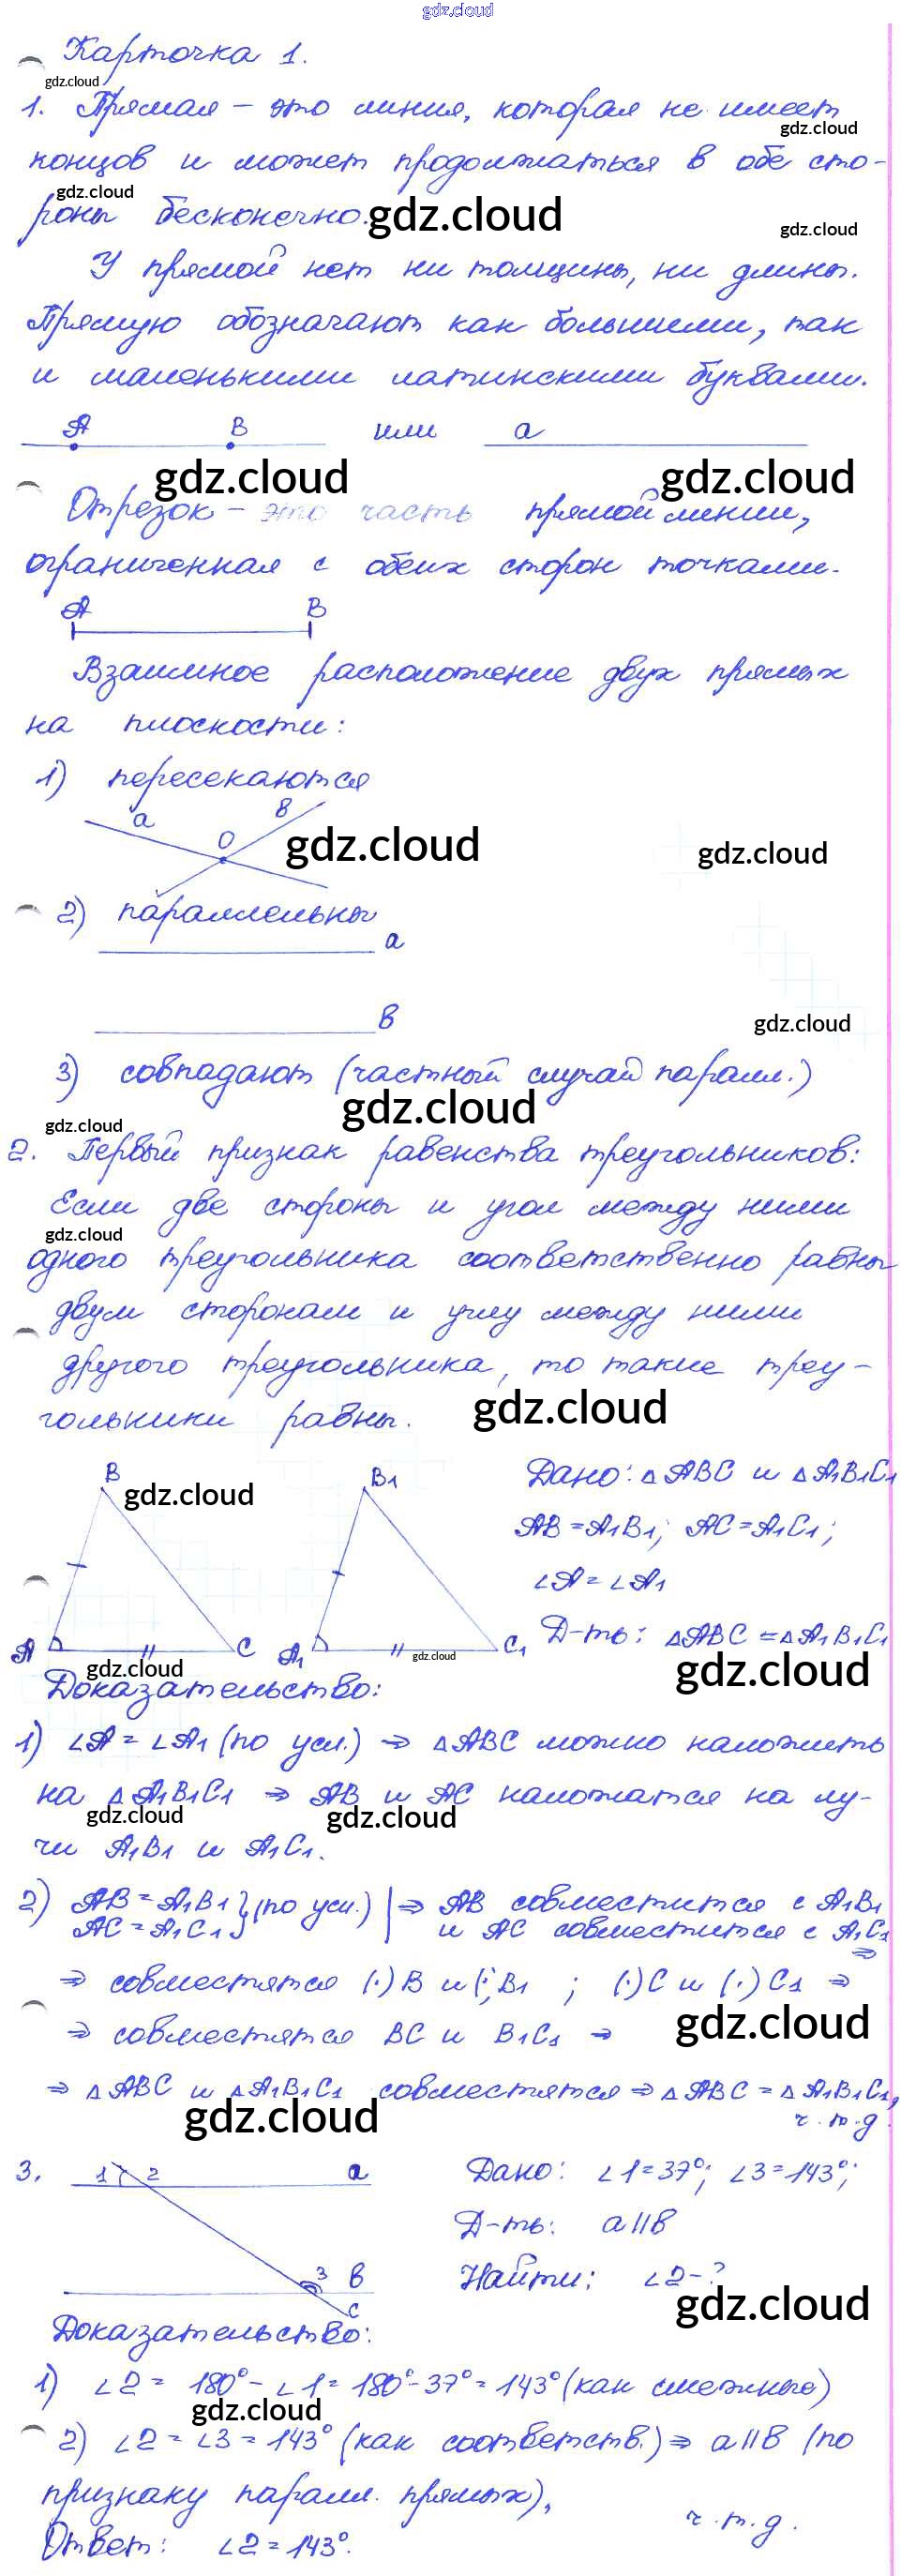 gdz.cloud
Карточка 1.
gdz.cloud
1. Прямая – это линия, которая не имеет
gdz.cloud
концов и может продолжаться в обе сто-
gdz.cloud
роны бесконечно.
gdz.cloud
gdz.cloud
У прямой нет ни толщины, ни длины.
Прямую обозначают как большими, так
и маленькими латинскими буквами.
A B или a
gdz.cloud gdz.cloud
Отрезок – это часть прямой линии,
ограниченная с обеих сторон точками.
A B
Взаимное расположение двух прямых
на плоскости:
1) пересекаются
a O в
gdz.cloud gdz.cloud
2) параллельны
a
в
gdz.cloud
3) совпадают (частный случай паралл.)
gdz.cloud
gdz.cloud
2. Первый признак равенства треугольников:
Если две стороны и угол между ними
gdz.cloud
одного треугольника соответственно равны
двум сторонам и углу между ними
другого треугольника, то такие треу-
гольники равны.
gdz.cloud
B B1 Дано: △ABC и △A1B1C1
gdz.cloud
AB = A1B1; AC = A1C1;
∠A = ∠A1
A C A1 C1 Д-ть: △ABC = △A1B1C1
gdz.cloud gdz.cloud gdz.cloud
Доказательство:
1) ∠A = ∠A1 (по усл.) ⇒ △ABC можно наложить
на △A1B1C1 ⇒ AB и AC наложатся на лу-
gdz.cloud gdz.cloud
чи A1B1 и A1C1.
2) AB = A1B1 } (по усл.) | ⇒ AB совместится с A1B1
AC = A1C1 и AC совместится с A1C1 ⇒
⇒ совместятся (·)B и (·)B1 ; (·)C и (·)C1 ⇒
gdz.cloud
⇒ совместятся BC и B1C1 ⇒
⇒ △ABC и △A1B1C1 совместятся ⇒ △ABC = △A1B1C1,
ч.т.д.
gdz.cloud
3. 1 2 a Дано: ∠1 = 37°; ∠3 = 143°;
Д-ть: a || в
3 в Найти: ∠2 - ?
c
gdz.cloud
Доказательство:
1) ∠2 = 180° - ∠1 = 180° - 37° = 143° (как смежные)
gdz.cloud
2) ∠2 = ∠3 = 143° (как соответств.) ⇒ a || в (по
признаку паралл. прямых),
ч.т.д.
Ответ: ∠2 = 143°.